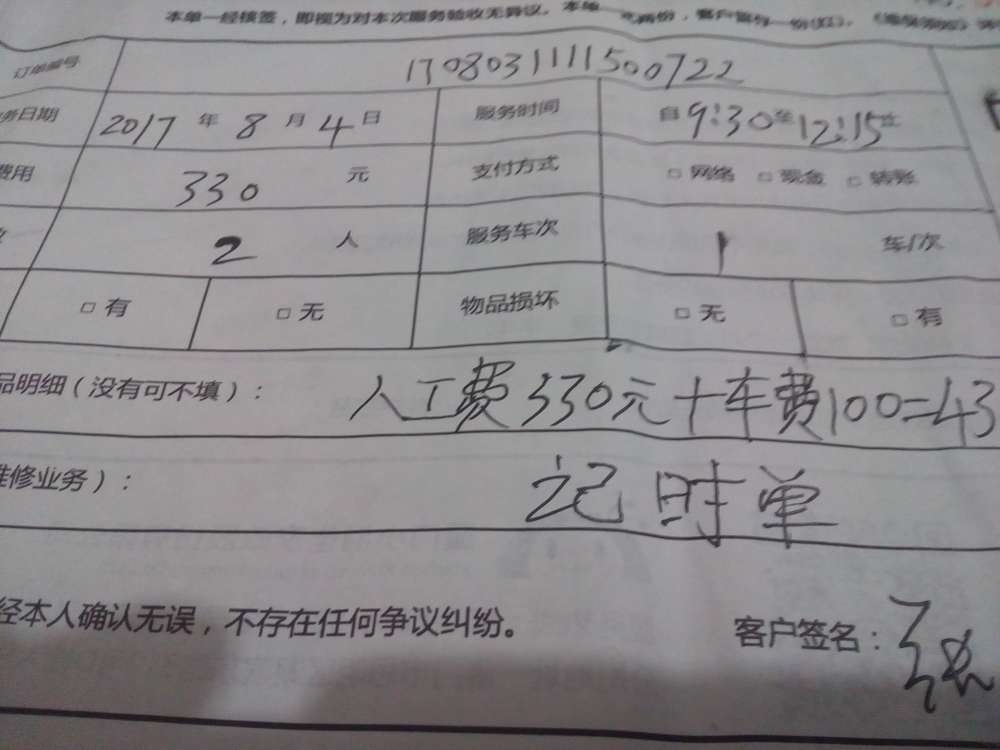 本单一经核签，即视为对本次服务验收无异议。本单
订单编号 1708031111500722
务日期 2017 年 8 月 4 日 服务时间 自 9:30 至 12:15 止
费用 330 元 支付方式 □ 网络 □ 现金 □ 转账
2 人 服务车次 1 车/次
□ 有 □ 无 物品损坏 □ 无 □ 有
品明细（没有可不填）： 人工费330元+车费100=43
维修业务）： 记时单
经本人确认无误，不存在任何争议纠纷。 客户签名：张